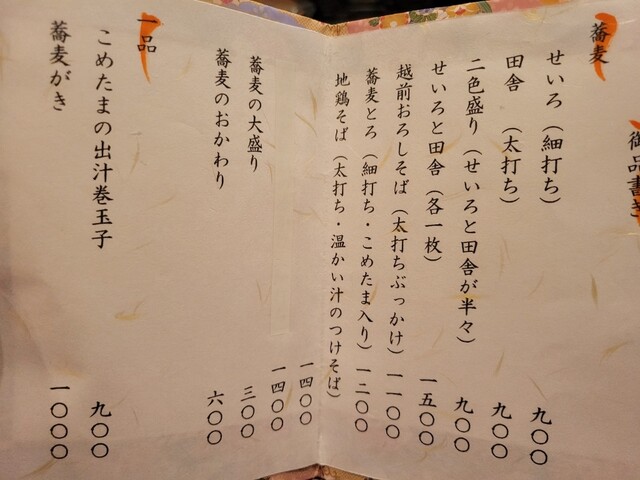 御品書き
蕎麦
せいろ（細打ち） 九〇〇
田舎（太打ち） 九〇〇
二色盛り（せいろと田舎が半々） 九〇〇
せいろと田舎（各一枚） 一五〇〇
越前おろしそば（太打ちぶっかけ） 一一〇〇
蕎麦とろ（細打ち・こめたま入り） 一二〇〇
地鶏そば（太打ち・温かい汁のつけそば） 一四〇〇
一四〇〇
蕎麦の大盛り 三〇〇
蕎麦のおかわり 六〇〇
一品
こめたまの出汁巻玉子 九〇〇
蕎麦がき 一〇〇〇